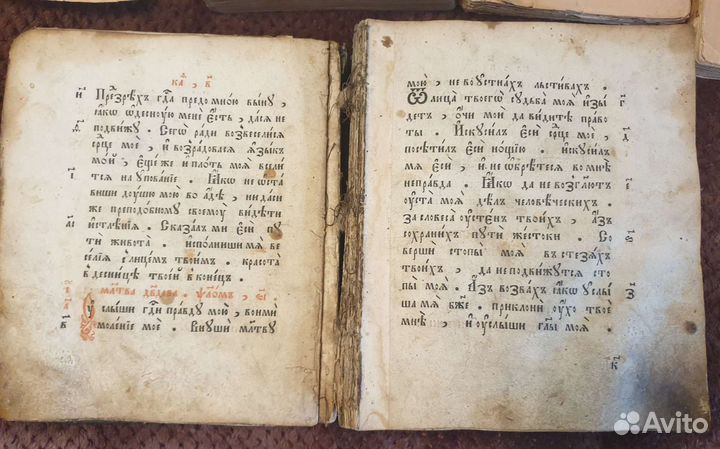 каѳ, в҃
и҃ Презрѣхъ гд҇а предомною выну,
ꙗкѡ ѡдесную мене єсть, да сѧ не
ѳ҃ подвижу . Сегѡ ради возвеселисѧ
срⷣце мое, и возрадовасѧ ꙗзыкъ
мой, еще же и плоть моѧ всели
і҃ тсѧ на упованіе . Ꙗкѡ не ѡста
виши душю мою во адѣ, ни даси
же преподобному своему видѣти
аі҃ истлѣніѧ . Сказалъ ми еси пу
ти живота . исполниши мѧ ве
селіѧ слицемъ твоимъ . красота
вдесницѣ твоей вконецъ .
Мл҃тва дв҃дова . ѱаломъ, ѕ҃і
Услыши гд҇и правду мою, вонми
в҃ моленіе мое . Внуши мл҃тву
мою, не во устнахъ льстивахъ .
Ѿ лица твоегѡ судьба моѧ изы г҃
детъ, очи мои да видите право
ты . Искусилъ еси срⷣце мое, д҃
посѣтилъ еси нощію . искусилъ
мѧ еси, и не ѡбрѣтесѧ во мнѣ
неправда . Ꙗкѡ да не возглютъ е҃
уста моѧ дѣлъ человѣческихъ .
За словеса устенъ твоихъ, азъ
сохранихъ пути жестоки . Со ѕ҃
верши стопы моѧ въ стезѧхъ
твоихъ, да не подвижутсѧ сто
пы моѧ . Азъ возвахъ ꙗкѡ услы з҃
ша мѧ бж҃е . приклони ухо твое
мнѣ, и услыши гл҃ы моѧ .
к҃
Avito